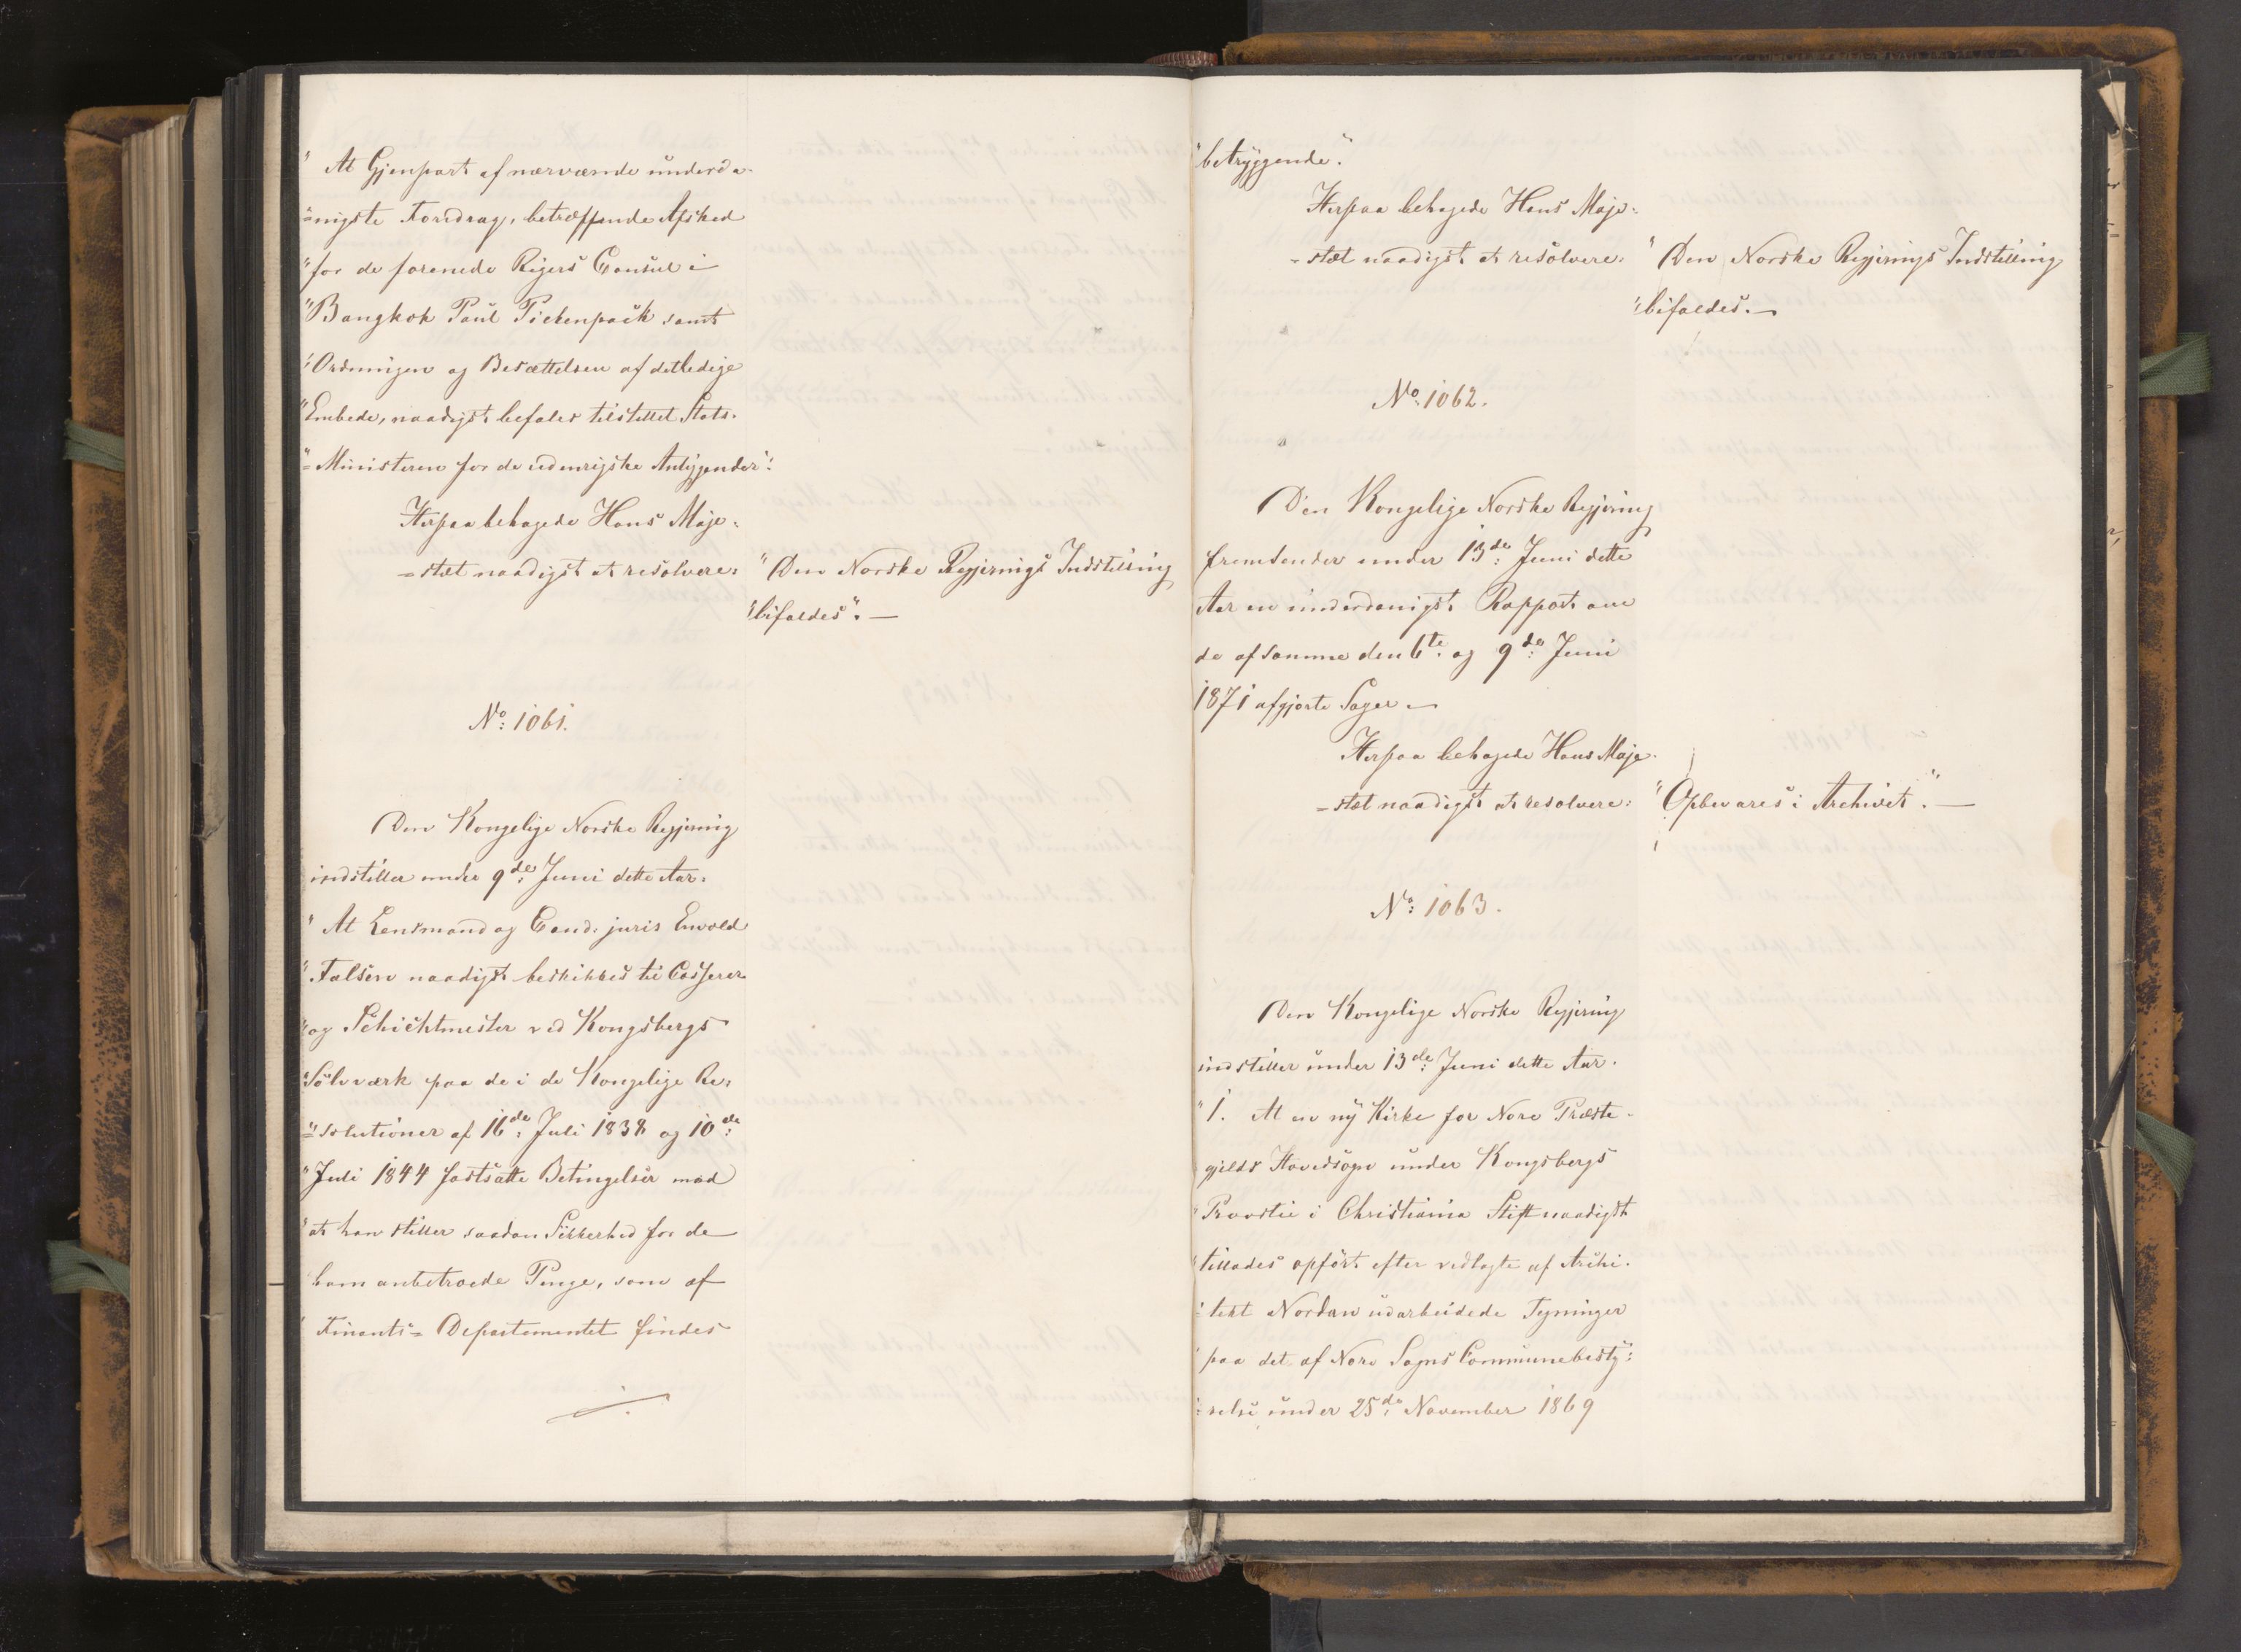 " At Gjenpart af nærværende underda-
"=nigste Foredrag, betræffende Afsked
"for de forenede Rigers Consul i
"Bangkok Paul Pickenpack samt
"Ordningen og Besættelsen af det ledige
"Embede, naadigst befales tilstillet Stats-
"=Ministeren for de udenrigske Anliggender":
Herpaa behagede Hans Maje-
=stæt naadigst at resolvere:
"Den Norske Regjerings Indstilling
"bifaldes". —
No: 1061.
Den Kongelige Norske Regjering
indstiller under 9de: Juni dette Aar:
" At Lensmand og Cand: juris Enwold
"Falsen naadigst beskikkes til Casserer
"og Schichtmester ved Kongsbergs
"Sölvværk paa de i de Kongelige Re-
"=solutioner af 16de: Juli 1838 og 10de:
"Juli 1844 fastsatte Betingelser mod
"at han stiller saadan Sikkerhed for de
ham anbetroede Penge, som af
" Finants=Departementet findes
"betryggende".
Herpaa behagede Hans Maje-
=stæt naadigst at resolvere:
"Den Norske Regjerings Indstilling
"bifaldes. —
No: 1062.
Den Kongelige Norske Regjering
fremsender under 13de: Juni dette
Aar en underdanigst Rapport om
de af samme den 6te: og 9de: Juni
1871 afgjorte Sager —
Herpaa behagede Hans Maje-
=stæt naadigst at resolvere:
"Opbevares i Archivet". —
No: 1063.
Den Kongelige Norske Regjering
indstiller under 13de: Juni dette Aar.
"1. At en ny Kirke for Nore Præste-
gjelds Hovedsogn under Kongsbergs
"Provstie i Christiania Stift naadigst
"tillades opfört efter vedlagte af Archi-
"=tekt Nordan udarbeidede Tegninger
"paa det af Nore Sogns Communebesty-
"=relse under 25de: November 1869